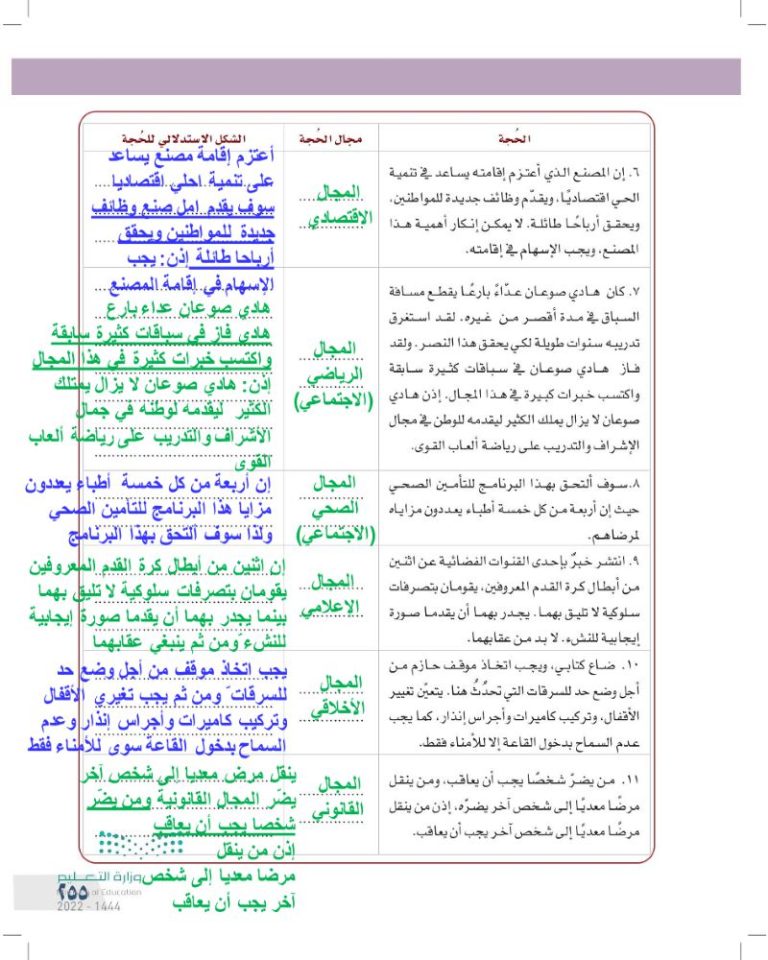 الحُجة
مجال الحُجة
الشكل الاستدلالي للحُجة
٦. إن المصنع الذي أعتزم إقامته يساعد في تنمية
الحي اقتصاديًا، ويقدّم وظائف جديدة للمواطنين،
ويحقق أرباحًا طائلة. لا يمكن إنكار أهمية هذا
المصنع، ويجب الإسهام في إقامته.
المجال
الاقتصادي
أعتزم إقامة مصنع يساعد
على تنمية احلي اقتصاديا
سوف يقدم امل صنع وظائف
جديدة للمواطنين ويحقق
أرباحا طائلة إذن: يجب
الإسهام في إقامة المصنع
٧. كان هادي صوعان عدّاءً بارعًا يقطع مسافة
السباق في مدة أقصر من غيره. لقد استغرق
تدريبه سنوات طويلة لكي يحقق هذا النصر. ولقد
فاز هادي صوعان في سباقات كثيرة سابقة
واكتسب خبرات كبيرة في هذا المجال. إذن هادي
صوعان لا يزال يملك الكثير ليقدمه للوطن في مجال
الإشراف والتدريب على رياضة ألعاب القوى.
المجال
الرياضي
(الاجتماعي)
هادي صوعان عداء بارع
هادي فاز في سباقات كثيرة سابقة
واكتسب خبرات كثيرة في هذا المجال
إذن: هادي صوعان لا يزال يمتلك
الكثير ليقدمه لوطنه في جمال
الأشراف والتدريب على رياضة ألعاب
القوى
٨. سوف ألتحق بهذا البرنامج للتأمين الصحي
حيث إن أربعة من كل خمسة أطباء يعددون مزاياه
لمرضاهم.
المجال
الصحي
(الاجتماعي)
إن أربعة من كل خمسة أطباء يعددون
مزايا هذا البرنامج للتأمين الصحي
ولذا سوف ألتحق بهذا البرنامج
٩. انتشر خبرٌ بإحدى القنوات الفضائية عن اثنين
من أبطال كرة القدم المعروفين، يقومان بتصرفات
سلوكية لا تليق بهما. يجدر بهما أن يقدما صورة
إيجابية للنشء. لا بد من عقابهما.
المجال
الإعلامي
إن اثنين من أبطال كرة القدم المعروفين
يقومان بتصرفات سلوكية لا تليق بهما
بينما يجدر بهما أن يقدما صورة إيجابية
للنشء ومن ثم ينبغي عقابهما
١٠. ضاع كتابي، ويجب اتخاذ موقف حازم من
أجل وضع حد للسرقات التي تحدُثُ هنا. يتعيّن تغيير
الأقفال، وتركيب كاميرات وأجراس إنذار، كما يجب
عدم السماح بدخول القاعة إلا للأمناء فقط.
المجال
الأخلاقي
يجب اتخاذ موقف من أجل وضع حد
للسرقات ومن ثم يجب تغيري الأقفال
وتركيب كاميرات وأجراس إنذار وعدم
السماح بدخول القاعة سوى للأمناء فقط
١١. من يضرّ شخصًا يجب أن يعاقب، ومن ينقل
مرضًا معديًا إلى شخص آخر يضرّه، إذن من ينقل
مرضًا معديًا إلى شخص آخر يجب أن يعاقب.
المجال
القانوني
ينقل مرض معديا إلى شخص آخر
يضّر المجال القانونية ومن يضّر
شخصا يجب أن يعاقب
إذن من ينقل
مرضا معديا إلى شخص
آخر يجب أن يعاقب
وزارة التعليم
of Education
٢٥٥
2022 - 1444